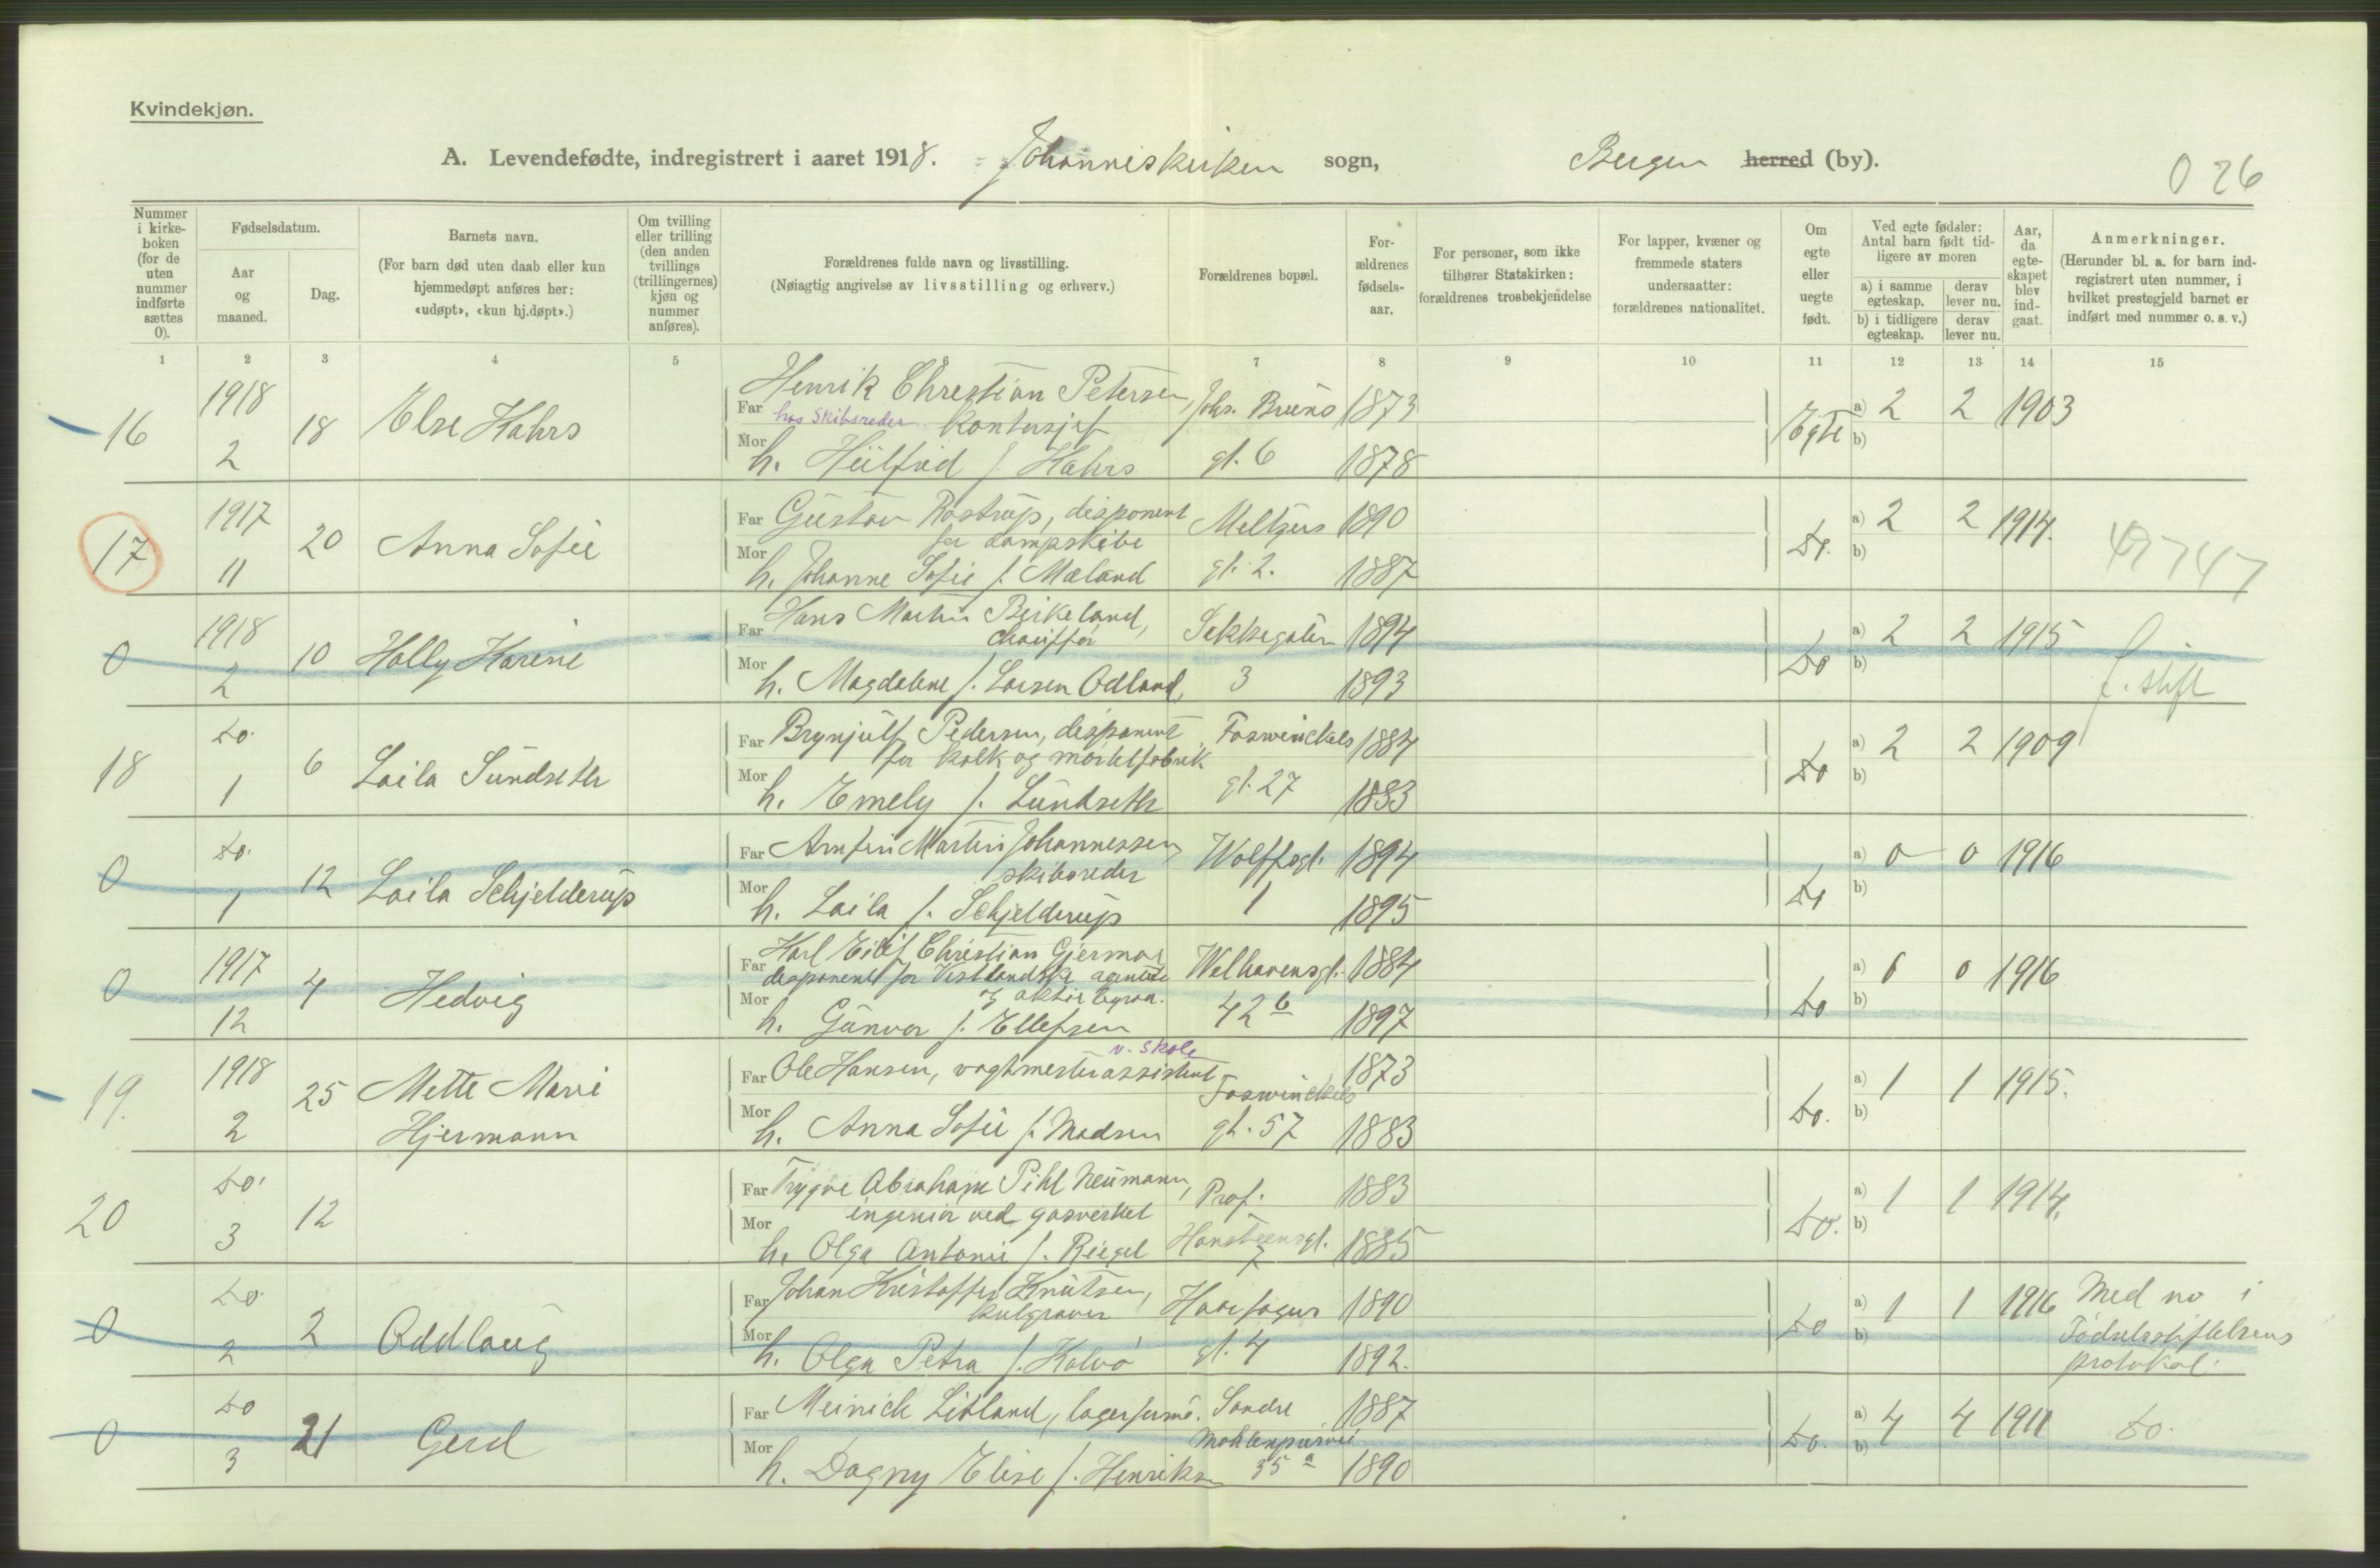 Kvindekjøn.
A. Levendefødte, indregistrert i aaret 1918. Johanneskirken sogn, Bergen herred (by).
026
Nummer i kirke-boken (for de uten nummer indførte sættes 0).
Fødselsdatum.
Aar og maaned.
Dag.
Barnets navn.
(For barn død uten daab eller kun hjemmedøpt anføres her: «udøpt», «kun hj.døpt».)
Om tvilling eller trilling (den anden tvillings (trillingernes) kjøn og nummer anføres).
Forældrenes fulde navn og livsstilling.
(Nøiagtig angivelse av livsstilling og erhverv.)
Forældrenes bopæl.
For-ældrenes fødsels-aar.
For personer, som ikke tilhører Statskirken: forældrenes trosbekjendelse
For lapper, kvæner og fremmede staters undersaatter: forældrenes nationalitet.
Om egte eller uegte født.
Ved egte fødsler: Antal barn født tid-ligere av moren
a) i samme egteskap. derav lever nu.
b) i tidligere egteskap. derav lever nu.
Aar, da egte-skapet blev ind-gaat.
Anmerkninger.
(Herunder bl. a. for barn ind-registrert uten nummer, i hvilket prestegjeld barnet er indført med nummer o. s. v.)
1 2 3 4 5 6 7 8 9 10 11 12 13 14 15
16 1918 2 18 Else Kahrs
Far Henrik Christian Petersen, hos Skibsreder kontorsjef Johs. Bruns 1873
Mor h. f. Kahrs gt. 6 1878
Egte a) 2 2 1903
b)
17 1917 11 20 Anna Sofie
Far Gustav Rostrup, disponent for dampskibe Meltzers 1890
Mor h. Johanne Sofie f. Mæland gt. 2. 1887
Do. a) 2 2 1914. 49747
b)
0 1918 2 10 Holly Karine
Far Hans Martin Birkeland, chauffør Sekkegaten 1894
Mor h. Magdalene f. Larsen Odland, 3 1893
Do a) 2 2 1915 f. stift
b)
18 Do. 1 6 Laila Sundseth
Far Brynjulf Pedersen, disponent for kalk og mørtelfabrik Foswinckels 1884
Mor h. Emely f. Sundseth gt. 27 1883
Do a) 2 2 1909
b)
0 Do. 1 12 Laila Schjelderup
Far Arnfin Martin Johannessen skibsreder Wolffsgt. 1894
Mor h. Laila f. Schjelderup 1 1895
Do a) 0 0 1916
b)
0 1917 12 4 Hedvig
Far Karl Eilif Christian disponent for Vestlandske agentur og aktie byraa. Welhavensgt. 1884
Mor h. Gunvor f. Ellefsen 42 b 1897
Do a) 0 0 1916
b)
19. 1918 2 25 Mette Marie Hjermann
Far Ole Hansen, vagtmesterassistent v. skole Foswinckels 1873
Mor h. Anna Sofie f. Madsen gt. 57 1883
Do. a) 1 1 1915.
b)
20 Do. 3 12
Far Trygve Abraham Pihl Neumann, ingeniør ved gasverket Prof. 1883
Mor h. Olga Antonie f. Riegel Hansteensgt. 7 1885
Do. a) 1 1 1914.
b)
0 Do. 2 2 Oddlaug
Far Johan Kristoffer Knutsen, kulgraver Harefagers 1890
Mor h. Olga Petra f. Kalvø gt. 4 1892.
Do a) 1 1 1916 Med no i Fødselsstiftelsens protokol.
b)
0 Do 3 21 Gerd
Far Meinich Litland, lagerform. Søndre 1887
Mor h. Dagny Elise f. Henriksen Møhlenprisvei 35 a 1890
Do. a) 4 4 1911 Do.
b)